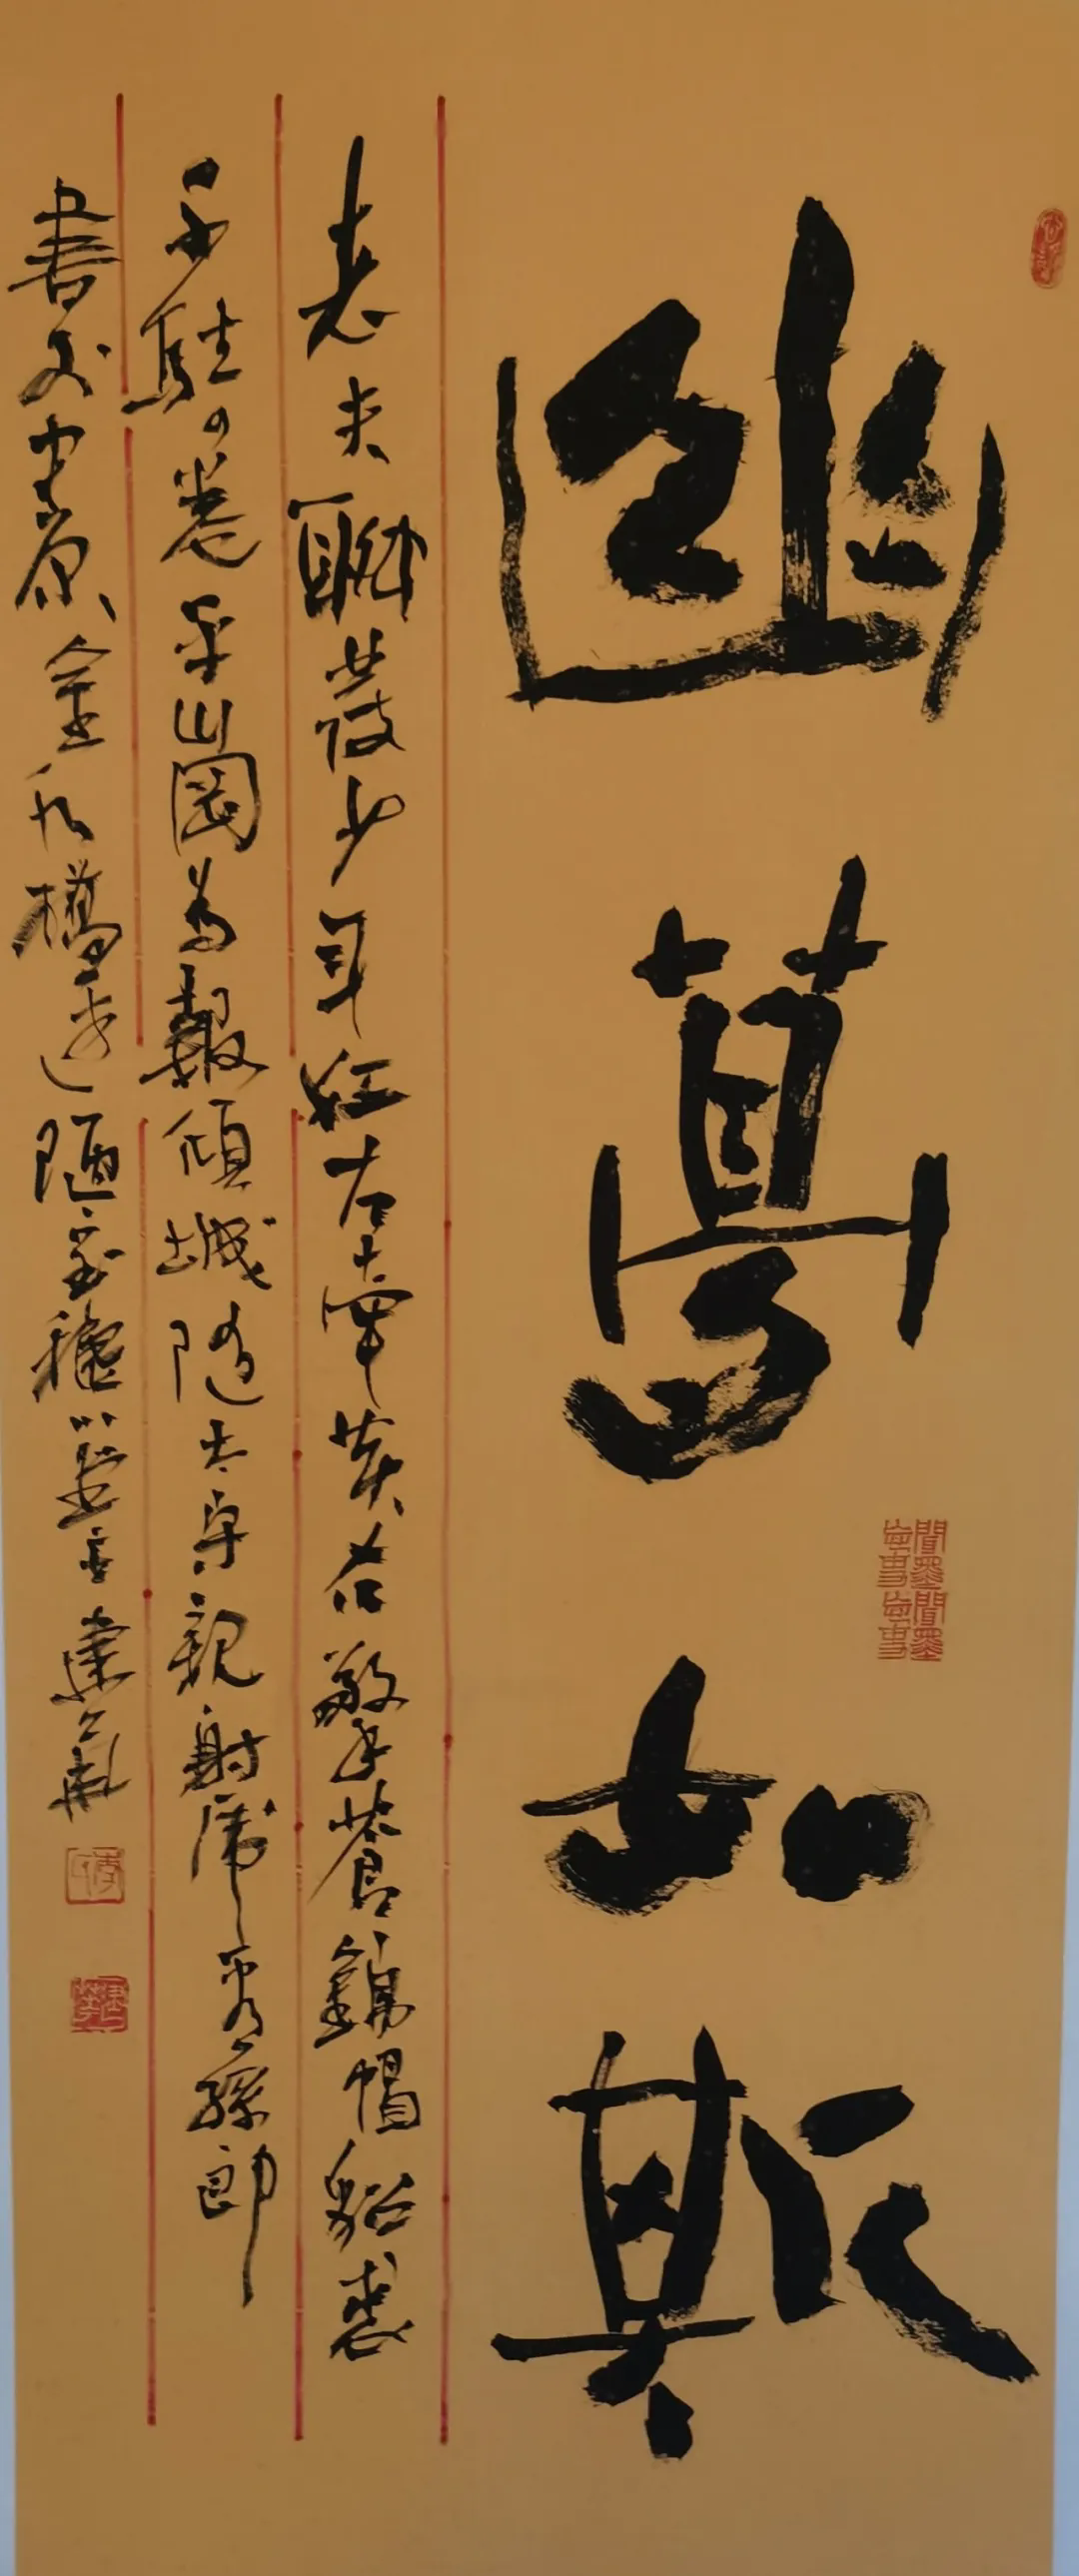 幽夢如斯
老夫聊發少年狂左牽黃右擎蒼錦帽貂裘
千騎卷平崗為報傾城隨太守親射虎看孫郎
書於中原金水橋邊隨